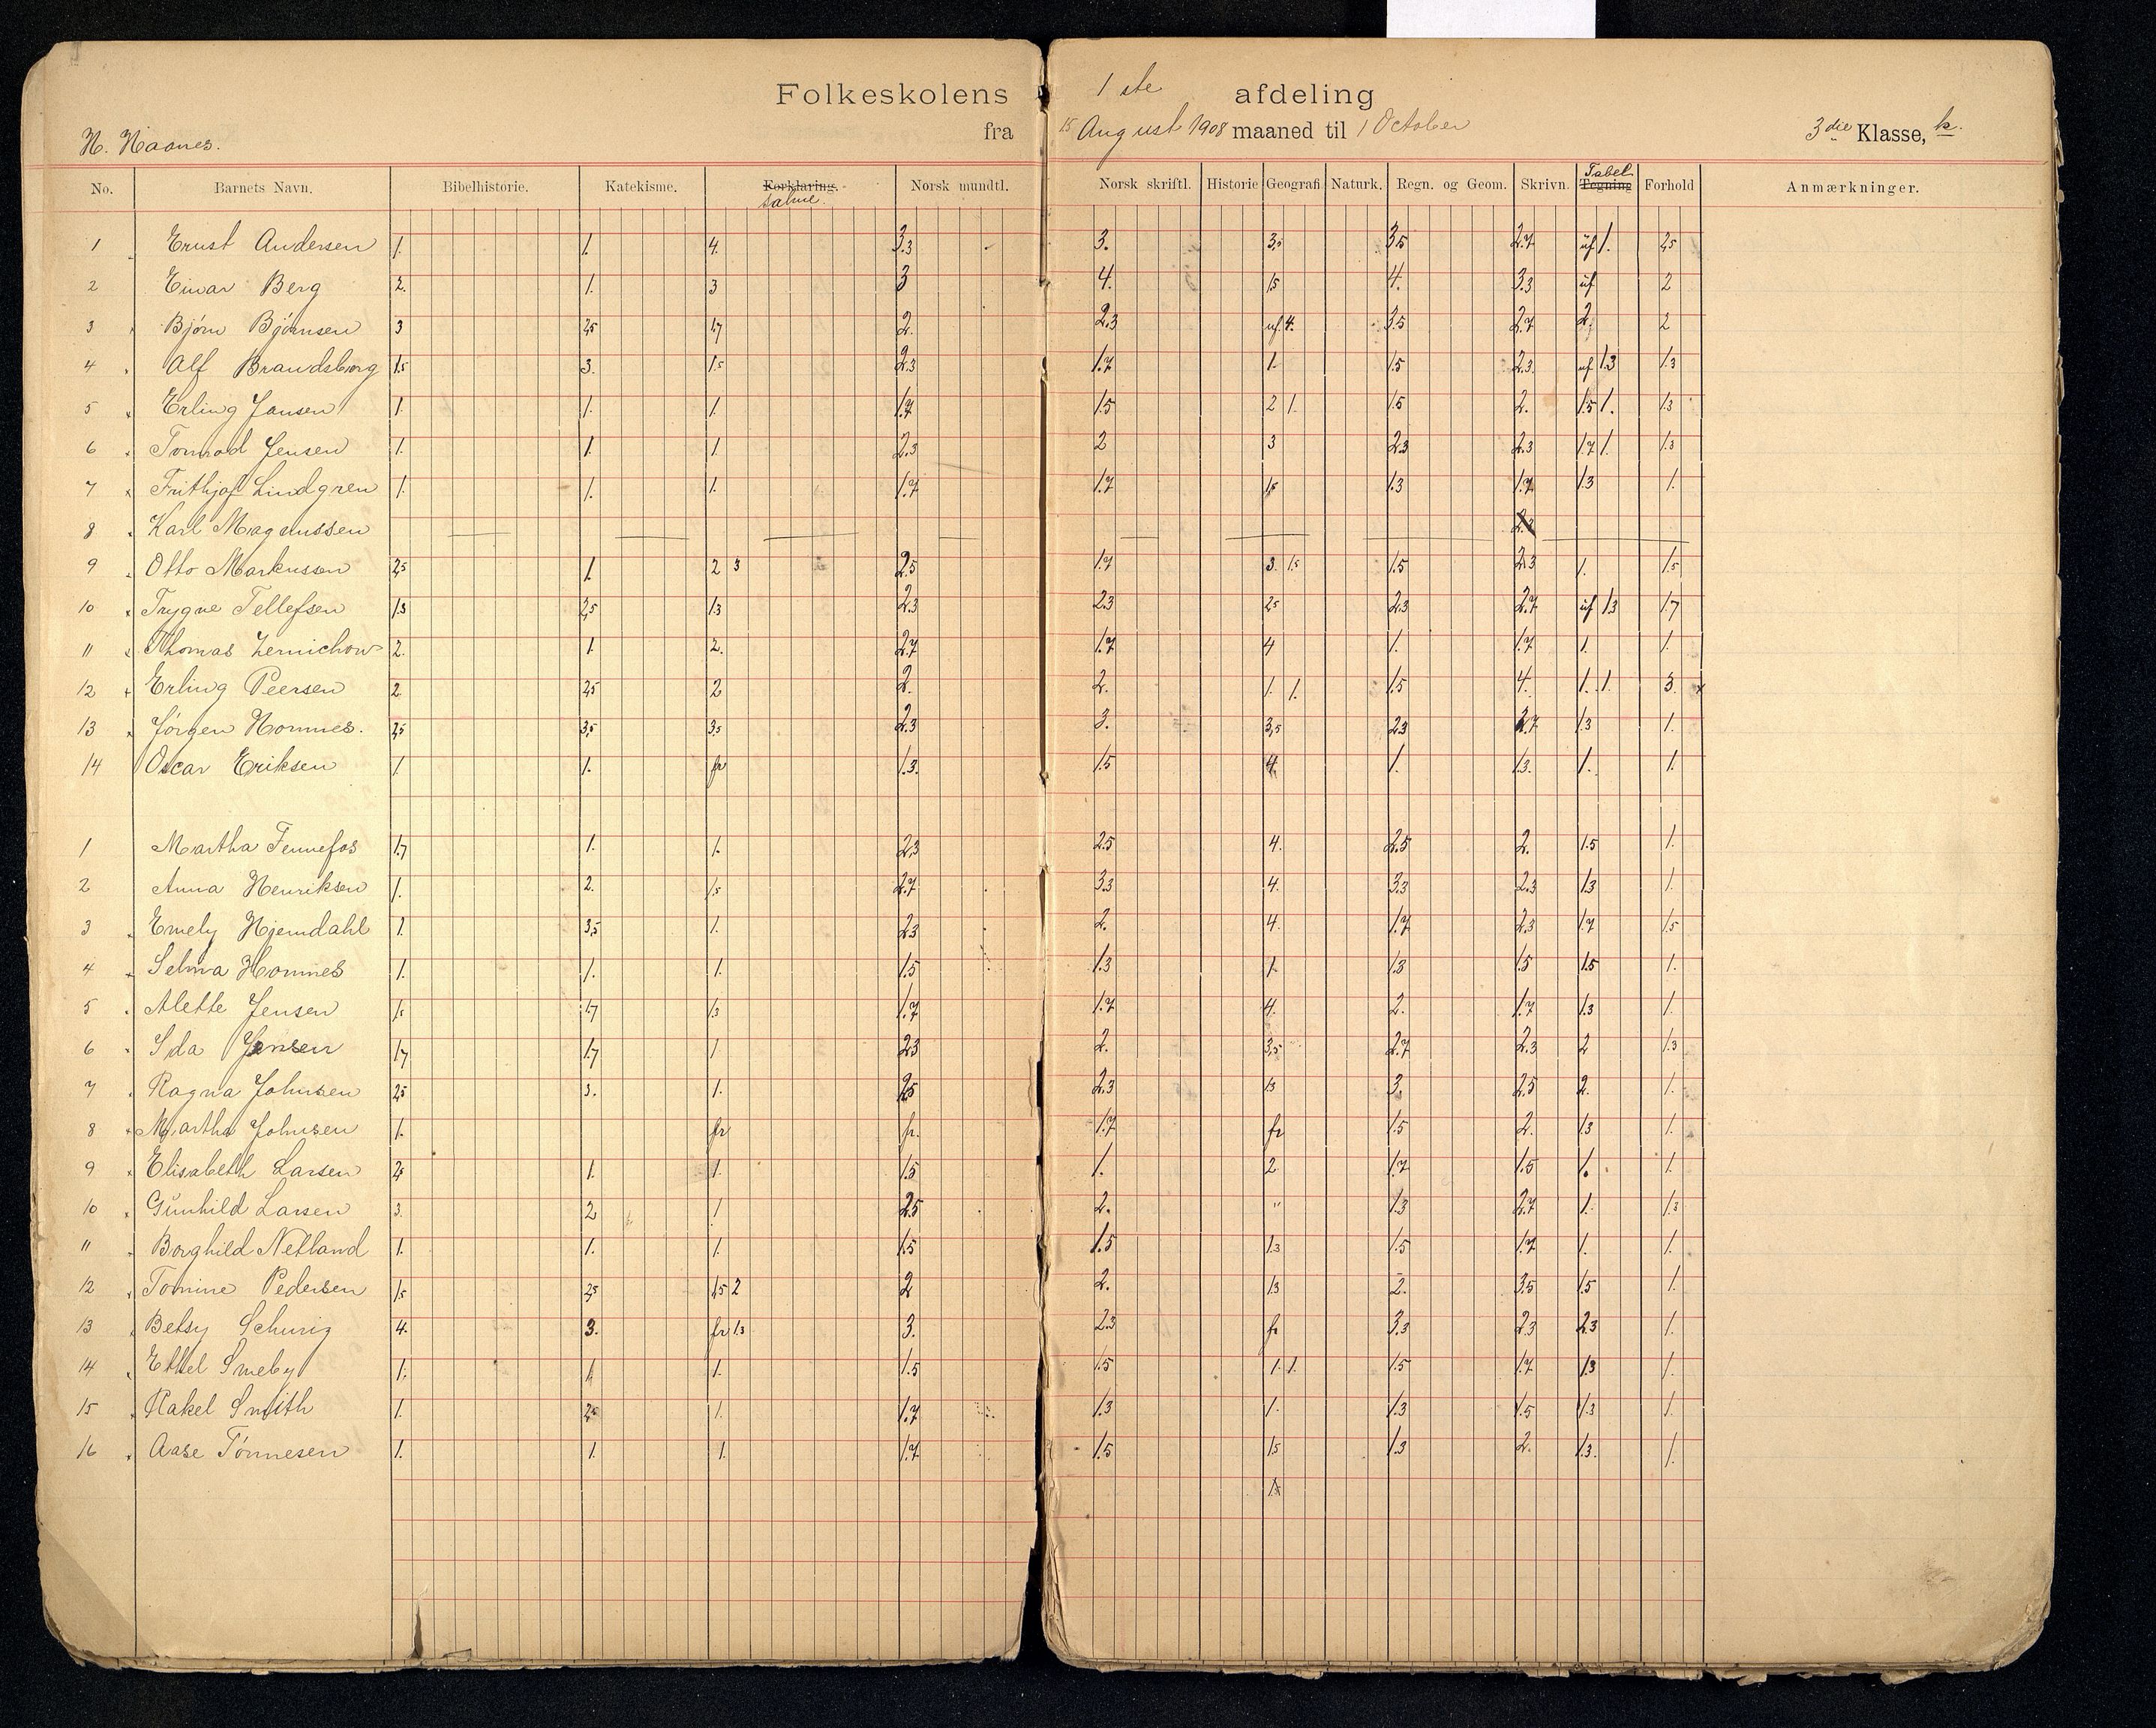 Folkeskolens 1 ste afdeling
H. Haanes. fra 15 August 1908 maaned til 1 October 3die Klasse, k.
No. Barnets Navn. Bibelhistorie. Katekisme. Forklaring. Salme. Norsk mundtl. Norsk skriftl. Historie Geografi Naturk. Regn. og Geom. Skrivn. Tegning Tabel Forhold Anmærkninger.
1 Ernst Andersen 1. 1. 4. 3.3 3. 3,5 3.5 2.7 uf 1. 2,5
2 Einar Berg 2. 1. 3 3 4. 1,5 4. 3.3 uf 2
3 Bjórn Bjórnsen 3 2,5 1,7 2. 2.3 uf. 4. 3.5 2.7 2. 2
4 Alf Brandsborg 1.5 3. 1.5 2.3 1.7 1. 1.5 2.3 uf 1.3 1.3
5 Erling Jansen 1. 1. 1. 1.7 1.5 2 1. 1.5 2. 1.5 1. 1.3
6 Tormod Jensen 1. 1. 1. 2.3 2 3 2.3 2.3 1.7 1. 1.3
7 Frithjof Lindgren 1. 1. 1. 1.7 1.7 1,5 1.3 1.7 1.3 1.
8 Karl Magnussen
9 Otto Markussen 2,5 1. 2 3 2.5 1.7 3. 1.5 1.5 2.3 1. 1.5
10 Trygve Tellefsen 1.3 2,5 1.3 2.3 2.3 2,5 2.3 2.7 uf 1.3 1.7
11 Thomas Zernichow 2. 1. 2. 2.7 1.7 4 1. 1.7 1. 1.
12 Erling Peersen 2. 2,5 2 2. 2. 1. 1. 1.5 4. 1. 1. 3. x
13 Jórgen Homnes. 2,5 3,5 3,5 2.3 3. 3,5 2.3 2.7 1.3 1.
14 Oscar Eriksen 1. 1. fr 1.3. 1.5 4. 1. 1.3. 1. 1.
1 Martha Fennefos 1.7 1. 1. 2.3 2.5 4. 2.5 2. 1.5 1.
2 Anna Henriksen 1. 2. 1.5 2.7 3.3 4. 3.3 2.3 1.3 1.
3 Emely Hjemdahl 1. 3,5 1. 2.3 2. 4. 1.7 2.3 1.7 1.5
4 Selma Homnes 1. 1. 1. 1.5 1.3 1. 1.3 1.5 1.5 1.
5 Alette Jensen 1.5 1.7 1.3 1.7 1.7 4. 2. 1.7 1.3 1.
6 Ida Jensen 1.7 1.7 1 2.3 2. 3,5 2.7 2.3 2 1.3
7 Ragna Johnsen 2,5 3. 1. 2.5 2.3 1.3 3. 2.5 2. 1.
8 Martha Johnsen 1. fr fr. 1.7 fr 1.5 2. 1.3 1.
9 Elisabeth Larsen 2,5 1. 1. 1.5 1. 2 1.7 1.5 1. 1.
10 Gŭnhild Larsen 3. 2 1 2.5 2. " 1.3 2.7 1. 1.3
11 Borghild Netland 1. 1. 1. 1.5 1.5 1.3 1.5 1.7 1. 1.
12 Tomine Pedersen 1.5 2,5 1.5 2 2 2. 1.3 2. 3.5 1.5 1.
13 Betsy Schurig 4. 3. fr 1.3 3. 2.3 fr 3.3 2.3 2.3 1.
14 Ethel Smeby 1. 1 1. 1.5 1.5 1. 1. 1.5 1.7 1.3 1.
15 Rakel Smith 1. 2,5 1. 1.7 1.3 1. 1.3 1.5 1.3 1.
16 Aase Tónnesen 1. 1. 1. 1.7 1.5 1.5 1.3 2. 1.3. 1.